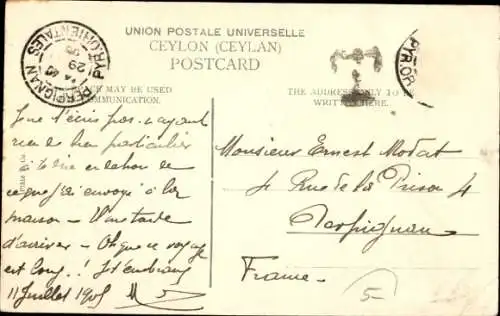 UNION POSTALE UNIVERSELLE
CEYLON (CEYLAN)
POSTCARD
PERPIGNAN
PYR. ORIENTALES
29
MAY BE USED
COMMUNICATION.
THE ADDRESS ONLY TO BE
WRITTEN HERE.
T
PYR. OR
Je ne t'écris pas n'ayant
rien de bien particulier
à te dire
ce que j'ai envoyé à la
maison - Il me tarde
d'arriver - Oh que ce voyage
est long..! Je t'embrasse
11 Juillet 1905
Monsieur Ernest Modat
4 Rue de la Prison 4
Perpignan
France
5